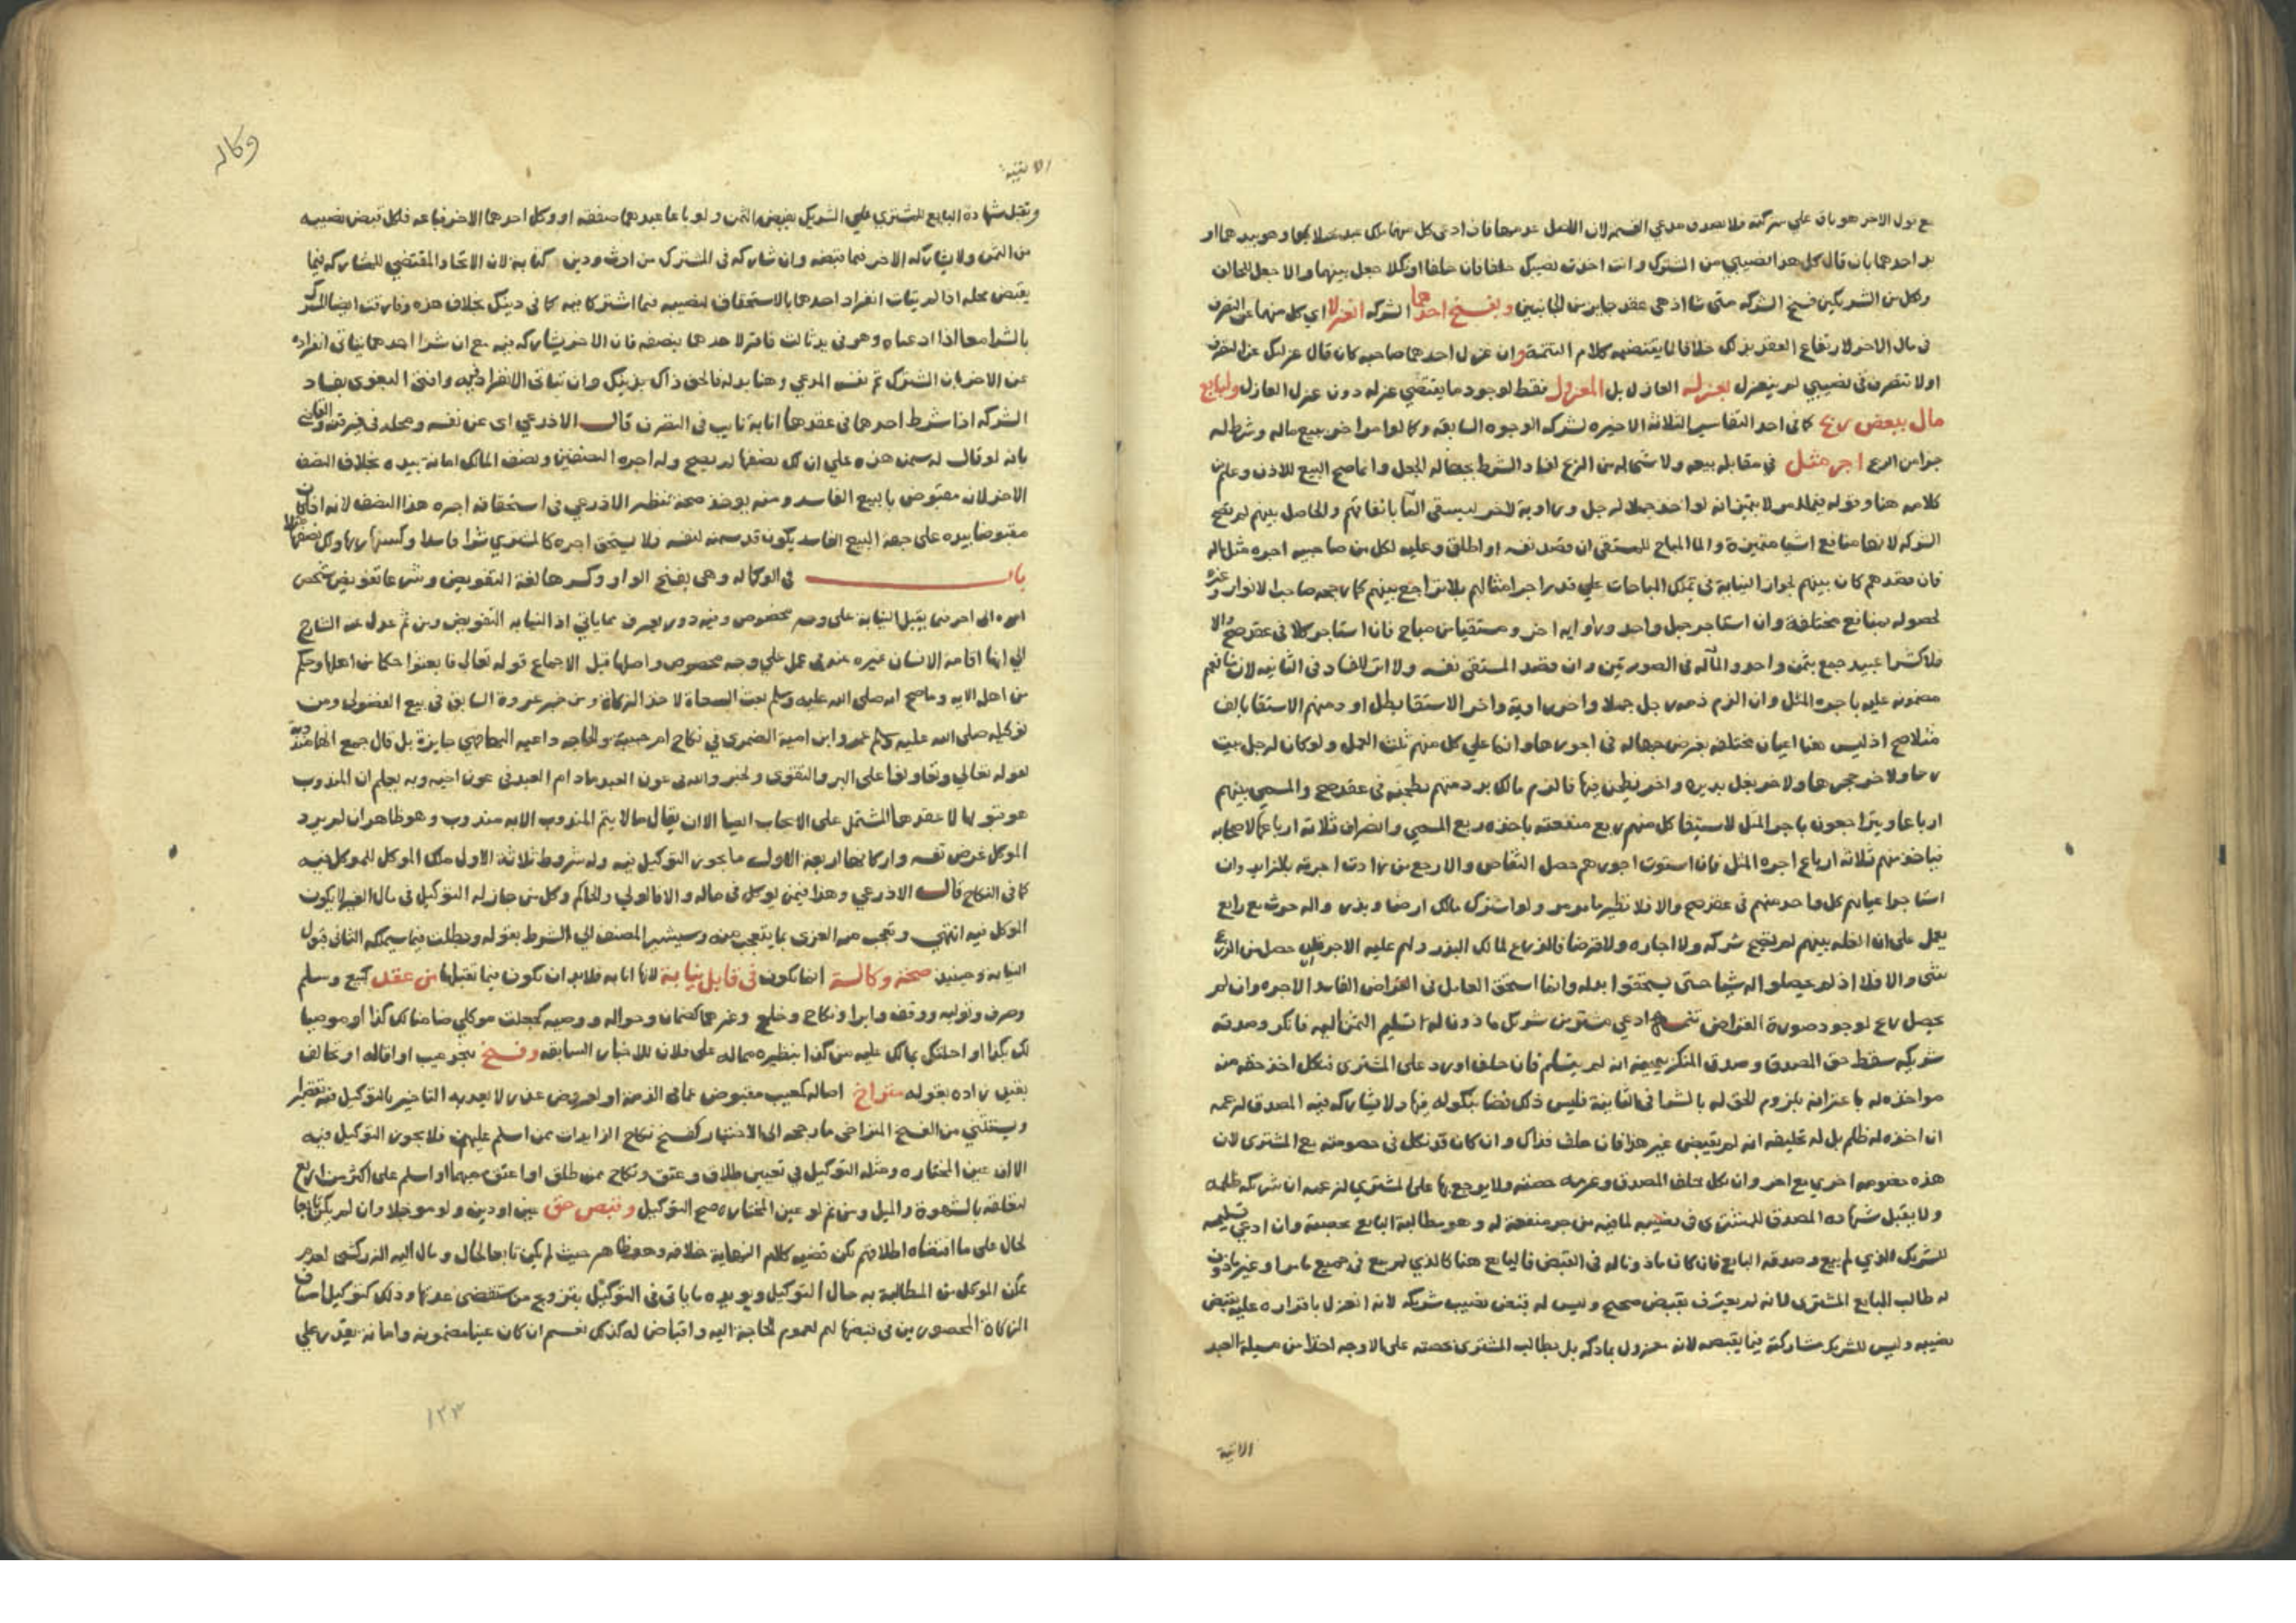 مع قول الاخر هو باق علي شركته فلا يصدق مدعي القسمه لان الاصل عدمها فان ادعي كل منهما ملك عبد مثلا وهو بيدهما او
يد احدهما بان قال كل هذا نصيبي من المشترك وانت اخذت نصيبك حلفا فان حلفا او نكلا جعل بينهما والا جعل للحالف
ولكل من الشريكين فسخ الشركه متي شا اذ هي عقد جايز من الجانبين وبفسخ احدهما الشركه انعزلا اي كل منهما عن التصرف
في مال الاخر لارتفاع العقد بذلك خلافا لما يقتضيه كلام التتمه وان عزل احدهما صاحبه كان قال عزلتك عن التصرف
او لا تتصرف في نصيبي لم ينعزل بعزله العازل بل المعزول فقط لوجود ما يقتضي عزله دون عزل العازل ولبايع
مال ببعض ربح كما في احد التفاسير الثلاثه الاخيره لشركه الوجوه السابقه وكما لو امر اخر ببيع ماله وشرط له
جزا من الربح اجر مثل في مقابله بيعه ولا شي له من الربح لفساد الشرط بجهاله الجعل وانما صح البيع للاذن وعلم من
كلامه هنا وقوله
الشركه لانها منافع اشيا متميزة والما المباح للمستقي ان قصد نفسه او اطلق وعليه لكل من صاحبيه اجره مثل اله
فان قصدهم كان بينهم لجواز النيابة في تملك المباحات علي قدر اجر امثالهم بلا تراجع بينهم كما رجحه صاحب الانوار وغيره
لحصوله بمنافع مختلفة وان استاجر جمل واحد وراوية اخر ومستقيا من مباح فان استاجر كلا في عقد صح والا
فلا كشرا عبيد جمع بثمن واحد والما له في الصورتين وان قصد المستقي نفسه ولا اثر للفساد في الثانيه لان منافعهم
مضمونه عليه باجره المثل وان الزم ذمه رجل جملا واخر راوية واخر الاستقا بطل او ذمتهم الاستقا بالف
مثلا صح اذ ليس هنا اعيان مختلفه تفرض جهاله في اجورها وانما علي كل منهم ثلث العمل ولو كان لرجل بيت
رحا ولاخر حجرها ولاخر بغل يديره واخر يطحن فيها فالزم مالك بر ذمتهم بطحنه في عقد صح والمسمي بينهم
ارباعا ويتراجعون باجر المثل لاستيفا كل منهم ربع منفعته باخذه ربع المسمي وانصراف ثلاثه ارباعها لاصحابه
فياخذ منهم ثلاثه ارباع اجره المثل فان استوت اجورهم حصل التقاص والا رجع من زادت اجرته بالزايد وان
استاجر اعيانهم كل واحد منهم في عقد صح والا فلا نظير ما مر ولو اشترك مالك ارض وبذر واله حرث مع رابع
يعمل علي ان الغله بينهم لم تصح شركه ولا اجاره ولا قراضا فالزرع لمالك البذر ولهم عليه الاجر ان حصل من الزرع
شي والا فلا اذ لم يحصلوا له شيا حتي يستحقوا بدله وانما استحق العامل في القراض الفاسد الاجره وان لم
يحصل ربح لوجود صورة القراض تتمه ادعي مشتر من شريك ماذون له تسليم الثمن اليه فانكر وصدقه
شريكه سقط حق المصدق وصدق المنكر بيمينه انه لم يتسلم فان حلف او رد علي المشتري فنكل اخذ حقه منه
مواخذه له باعترافه بلزوم الحق له بالشرا في الثانية فليس ذلك قضا بنكوله فيها ولا يشاركه فيه المصدق لزعمه
ان اخذه له ظلم بل له تحليفه انه لم يقبض غير هذا فان حلف فذاك وان كان قد نكل في خصومته مع المشتري لان
هذه خصومه اخري مع اخر وان نكل حلف المصدق وغرمه حصته ولا يرجع بها علي المشتري لزعمه ان شريكه ظلمه
ولا يقبل شهاده المصدق للمشتري في نصيبه لما فيه من جر منفعة له وهو مطالبة البايع بحصته وان ادعي تسليمه
للشريك الذي لم يبع وصدقه البايع فان كان ماذونا له في القبض فالبايع هنا كالذي لم يبع في جميع ما مر او غير ماذون
له طالب البايع المشتري لانه لم يعترف بقبض صحيح وليس له قبض نصيب شريكه لانه انعزل باقراره عليه بقبض
نصيبه وليس للشريك مشاركته فيما يقبضه لانه معزول بما ذكر بل يطالب المشتري بحصته علي الاوجه اخذا من مسيلة العبد
الاتية
وكاله
الاتية
وتقبل شهادة البايع للمشتري علي الشريك بقبض الثمن ولو باعا عبدهما صفقه او وكل احدهما الاخر فباعه فلكل قبض نصيبه
من الثمن ولا يشاركه الاخر فيما قبضه وان شاركه في المشترك من ارث ودين كتابه لان الاتحاد المقتضي للمشاركه فيما
يقبض محله اذا لم يتات انفراد احدهما بالاستحقاق لنصيبه فيما اشتركا فيه كما في دينك بخلاف هذه وفارقت ايضا المشترك
بالشرا معا اذا ادعياه وهو في يد ثالث فاقر لاحدهما بنصفه فان الاخر يشاركه فيه مع ان شرا احدهما يتاتي انفراده
عن الاخر بان المشترك ثم نفس المدعي وهنا بدله فالحق ذاك بذينك وان يتات الانفراد فيه وافتي البغوي بفساد
الشركه اذا شرط احدهما في عقدها انابة نايب في التصرف قال الاذرعي اي عن نفسه ومحله في
بانه لو قال له سمن هذه علي ان لك نصفها لم يصح وله اجره النصفين ونصف المالك امانة بيده بخلاف النصف
الاخر لانه مقبوض بالبيع الفاسد ومنه يوخذ صحة تنظير الاذرعي في استحقاقه اجره هذا النصف لانه اذا كان
مقبوضا بيده علي جهة البيع الفاسد يكون قد سمنه لنفسه فلا يستحق اجره كالمشتري شرا فاسدا
باب في الوكاله وهي بفتح الواو وكسرها لغة التفويض وشرعا تفويض شخص
امره الي اخر فيما يقبل النيابة علي وجه مخصوص وفيه دور يعرف مما ياتي اذ النيابه التفويض ومن ثم عدل عنه الشارح
الي انها اقامة الانسان غيره عنه في عمل علي وجه مخصوص واصلها قبل الاجماع قوله تعالي فابعثوا حكما من اهله وحكما
من اهلها الايه وما صح انه صلي الله عليه وسلم بعث السعاة لاخذ الزكاة ومن خبر عروة السابق في بيع الفضولي ومن
توكيله صلي الله عليه وسلم عمرو ابن امية الضمري في نكاح ام حبيبة والحاجه داعيه اليها فهي جايزة بل قال جمع انها مندوبة
لقوله تعالي وتعاونوا علي البر والتقوي ولخبر والله في عون العبد مادام العبد في عون اخيه وبه يعلم ان المندوب
هو قبولها لا عقدها المشتمل علي الايجاب ايضا الا ان يقال ما لا يتم المندوب الا به مندوب وهو ظاهر ان لم يرد
الموكل غرض نفسه واركانها اربعة الاول ما يجوز التوكيل فيه وله شروط ثلاثة الاول ملك الموكل للموكل فيه
كما في النكاح قال الاذرعي وهذا فيمن يوكل في ماله والا فالولي والحاكم وكل من جاز له التوكيل في مال الغير لا يكون
الموكل فيه انتهي وتعجب من الغزي بما يتعجب منه وسيشير المصنف الي الشرط بقوله وبطلت فيما سيملكه الثاني قبول
النيابه وحينئذ صحة وكالة انما تكون في قابل نيابة لانها انابه فلا بد ان تكون فيما تقبلها من عقد كبيع وسلم
وصرف وتوليه ووقف وابرا ونكاح وخلع وغيرها كضمان وحواله ووصيه كجعلت موكلي ضامنا لك كذا او موصيا
لك بكذا او احلتك بما لك عليه من كذا بنظيره مما له علي فلان للاخبار السابقه وفسخ بنحو عيب او اقاله او تحالف
بقيد زاده بقوله متراخ اصاله كعيب مقبوض عما في الذمة او لعروض عذر لا يعد به التاخير بالتوكيل فيه تقصيرا
ويستثني من الفسخ المتراخي ما رجعه الي الاختيار كفسخ نكاح الزايدات ممن اسلم عليهن فلا يجوز التوكيل فيه
الا ان عين المختاره ومثله التوكيل في تعيين طلاق وعتق ونكاح ممن طلق او اعتق مبهما او اسلم علي اكثر من اربع
لتعلقه بالشهوة والميل ومن ثم لو عين المختاره صح التوكيل وقبض حق عين او دين ولو موجلا وان لم يكن تابعا
لحال علي ما اقتضاه اطلاقهم لكن قضيه كلام النهاية خلافه وهو ظاهر حيث لم يكن تابعا لحال ومال اليه الزركشي لعدم
تمكن الموكل من المطالبة به حال التوكيل ويويده ما ياتي في التوكيل بتزويج من ستنقضي عدتها وذلك كتوكيل اصناف
الزكاة المحصورين في قبضها لهم لعموم الحاجة اليه واقباض له كذلك نعم ان كان عينا مضمونه وامانه يقدر علي
١٢٣